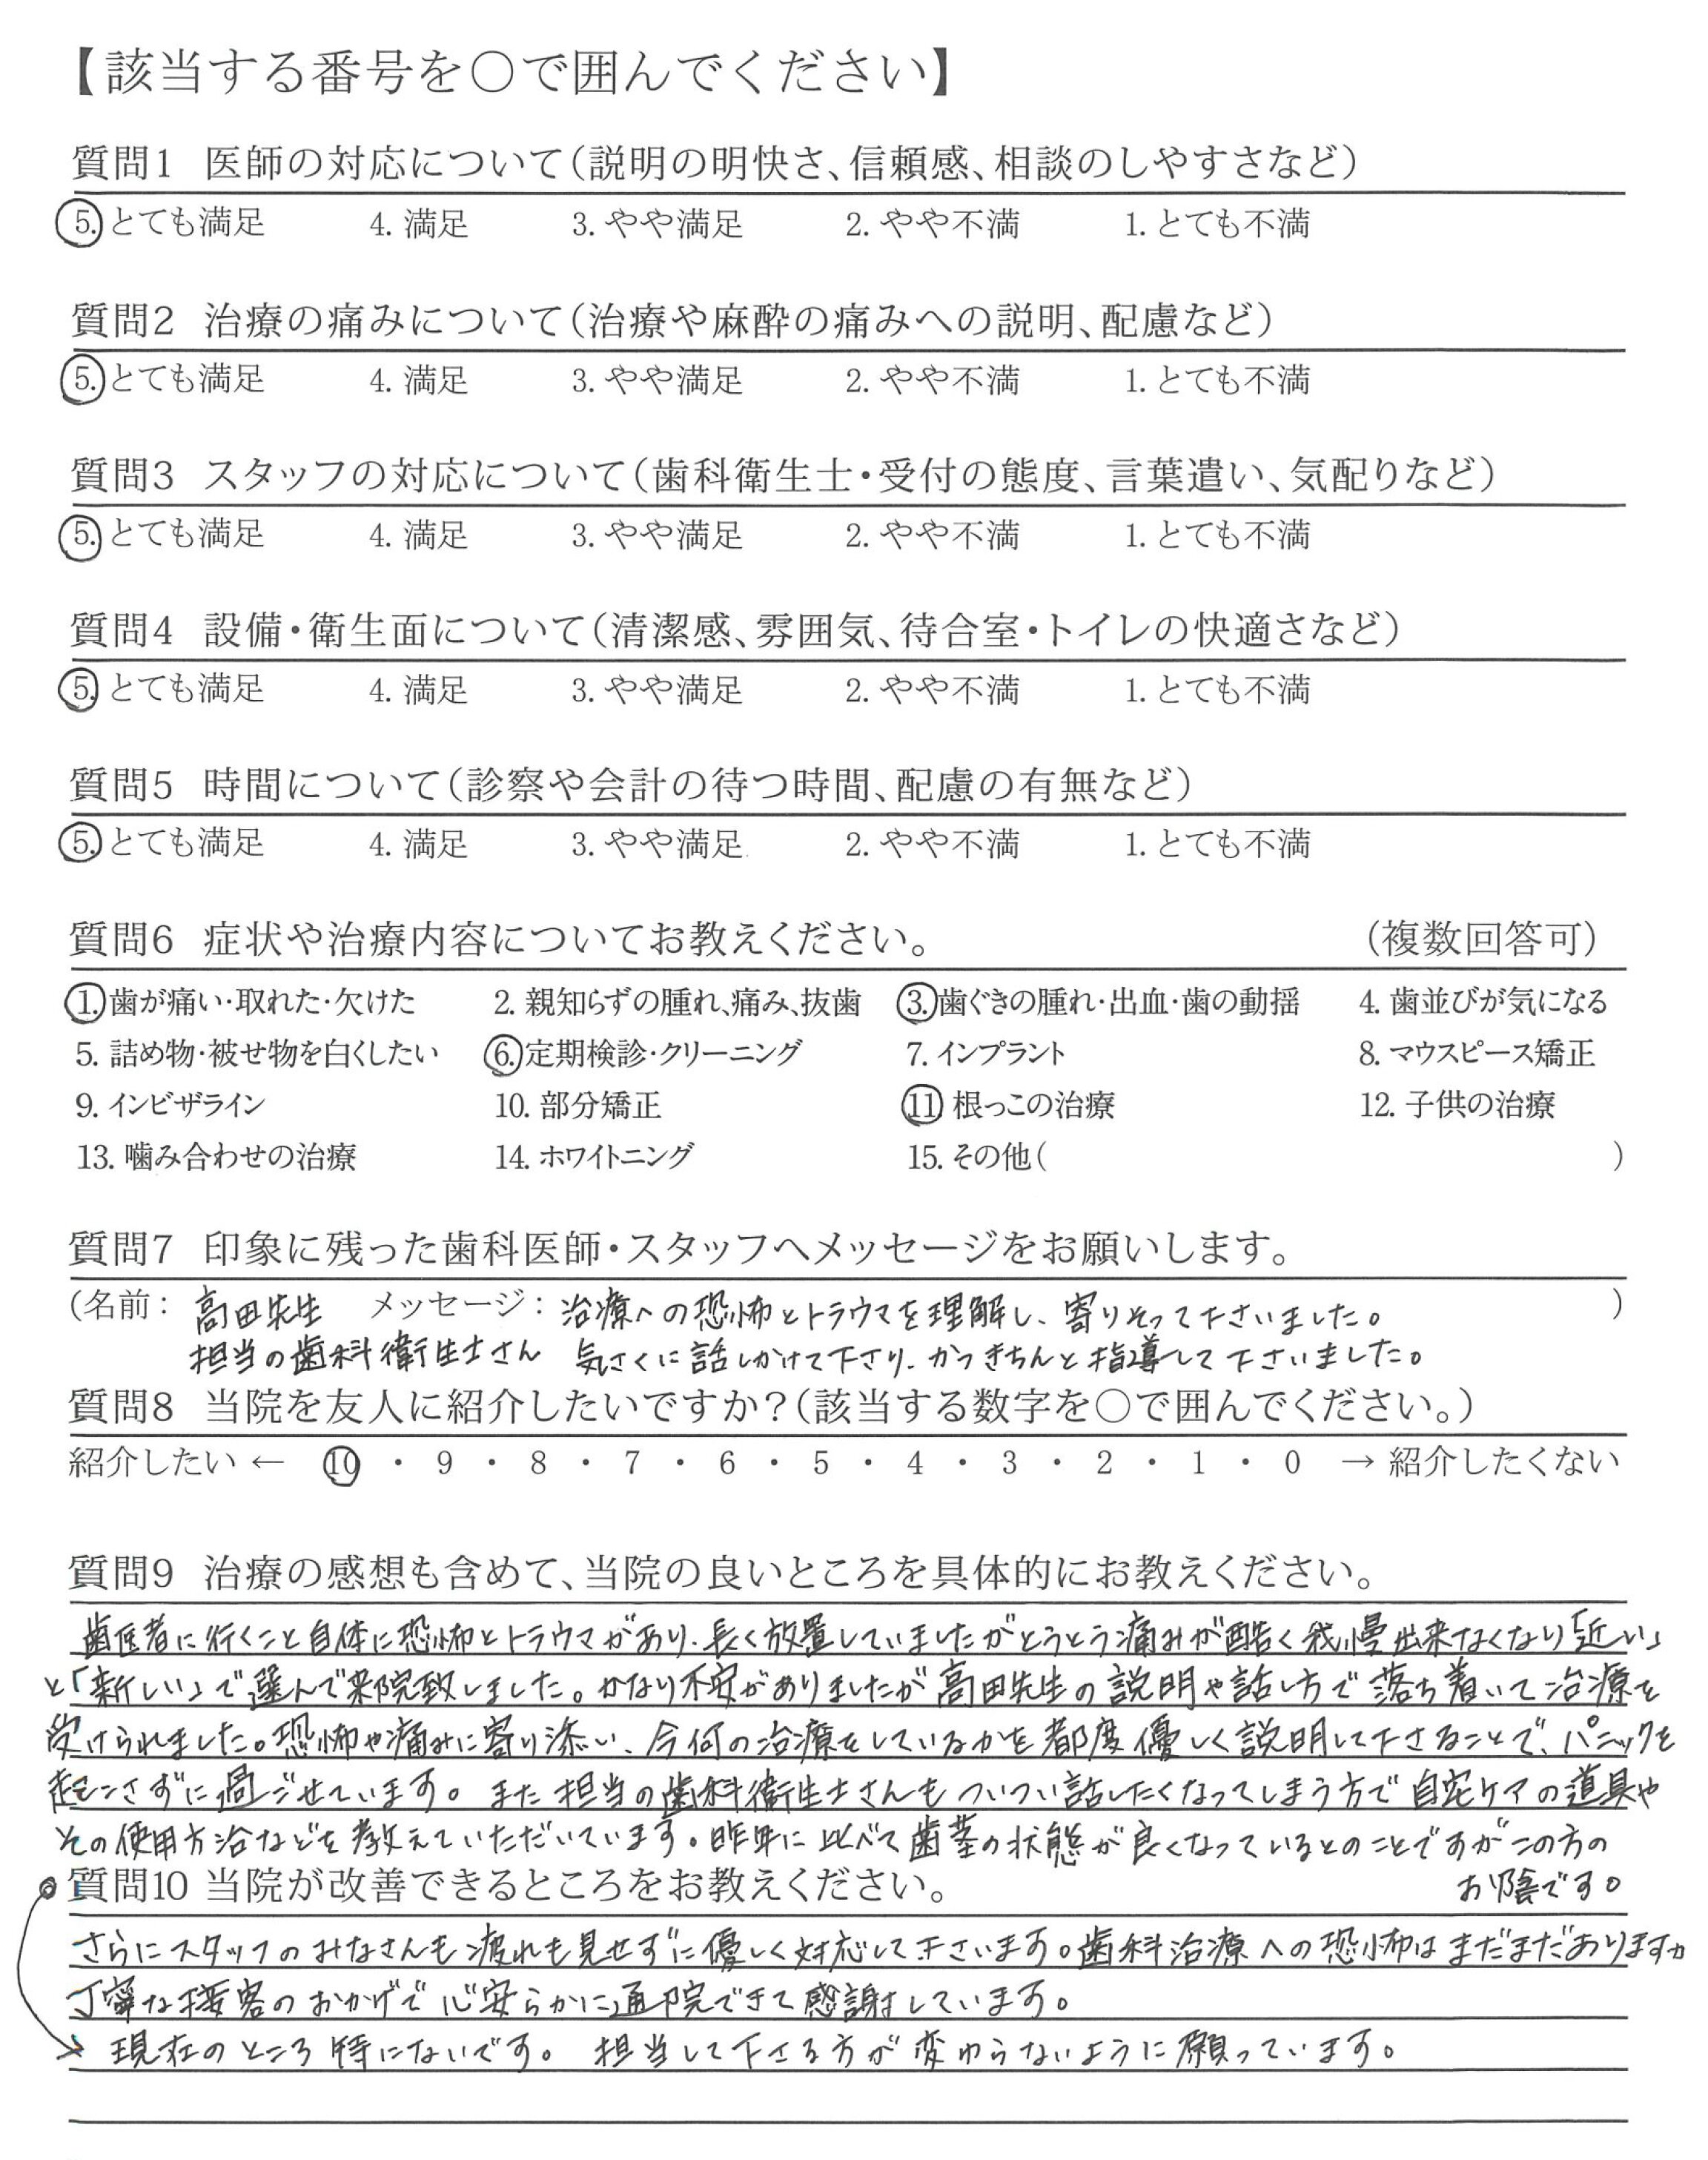 【該当する番号を〇で囲んでください】
質問1 医師の対応について(説明の明快さ、信頼感、相談のしやすさなど)
5. とても満足 4. 満足 3. やや満足 2. やや不満 1. とても不満
質問2 治療の痛みについて(治療や麻酔の痛みへの説明、配慮など)
5. とても満足 4. 満足 3. やや満足 2. やや不満 1. とても不満
質問3 スタッフの対応について(歯科衛生士・受付の態度、言葉遣い、気配りなど)
5. とても満足 4. 満足 3. やや満足 2. やや不満 1. とても不満
質問4 設備・衛生面について(清潔感、雰囲気、待合室・トイレの快適さなど)
5. とても満足 4. 満足 3. やや満足 2. やや不満 1. とても不満
質問5 時間について(診察や会計の待つ時間、配慮の有無など)
5. とても満足 4. 満足 3. やや満足 2. やや不満 1. とても不満
質問6 症状や治療内容についてお教えください。 (複数回答可)
1. 歯が痛い・取れた・欠けた 2. 親知らずの腫れ、痛み、抜歯 3. 歯ぐきの腫れ・出血・歯の動揺 4. 歯並びが気になる
5. 詰め物・被せ物を白くしたい 6. 定期検診・クリーニング 7. インプラント 8. マウスピース矯正
9. インビザライン 10. 部分矯正 11 根っこの治療 12. 子供の治療
13. 噛み合わせの治療 14. ホワイトニング 15. その他( )
質問7 印象に残った歯科医師・スタッフへメッセージをお願いします。
(名前: 高田先生 メッセージ: 治療への恐怖とトラウマを理解し、寄りそって下さいました。 )
担当の歯科衛生士さん 気さくに話しかけて下さり、かつきちんと指導して下さいました。
質問8 当院を友人に紹介したいですか?(該当する数字を〇で囲んでください。)
紹介したい ← 10 ・ 9 ・ 8 ・ 7 ・ 6 ・ 5 ・ 4 ・ 3 ・ 2 ・ 1 ・ 0 → 紹介したくない
質問9 治療の感想も含めて、当院の良いところを具体的にお教えください。
歯医者に行くこと自体に恐怖とトラウマがあり、長く放置していましたがとうとう痛みが酷く我慢出来なくなり「近い」
と「新しい」で選んで来院致しました。かなり不安がありましたが高田先生の説明や話し方で落ち着いて治療を
受けられました。恐怖や痛みに寄り添い、今何の治療をしているかを都度優しく説明して下さることで、パニックを
起こさずに過ごせています。また担当の歯科衛生士さんもついつい話したくなってしまう方で自宅ケアの道具や
その使用方法などを教えていただいています。昨年に比べて歯茎の状態が良くなっているとのことですがこの方の
お陰です。
質問10 当院が改善できるところをお教えください。
さらにスタッフのみなさんも疲れも見せずに優しく対応して下さいます。歯科治療への恐怖はまだまだありますが
丁寧な接客のおかげで心安らかに通院できて感謝しています。
現在のところ特にないです。 担当して下さる方が変わらないように願っています。